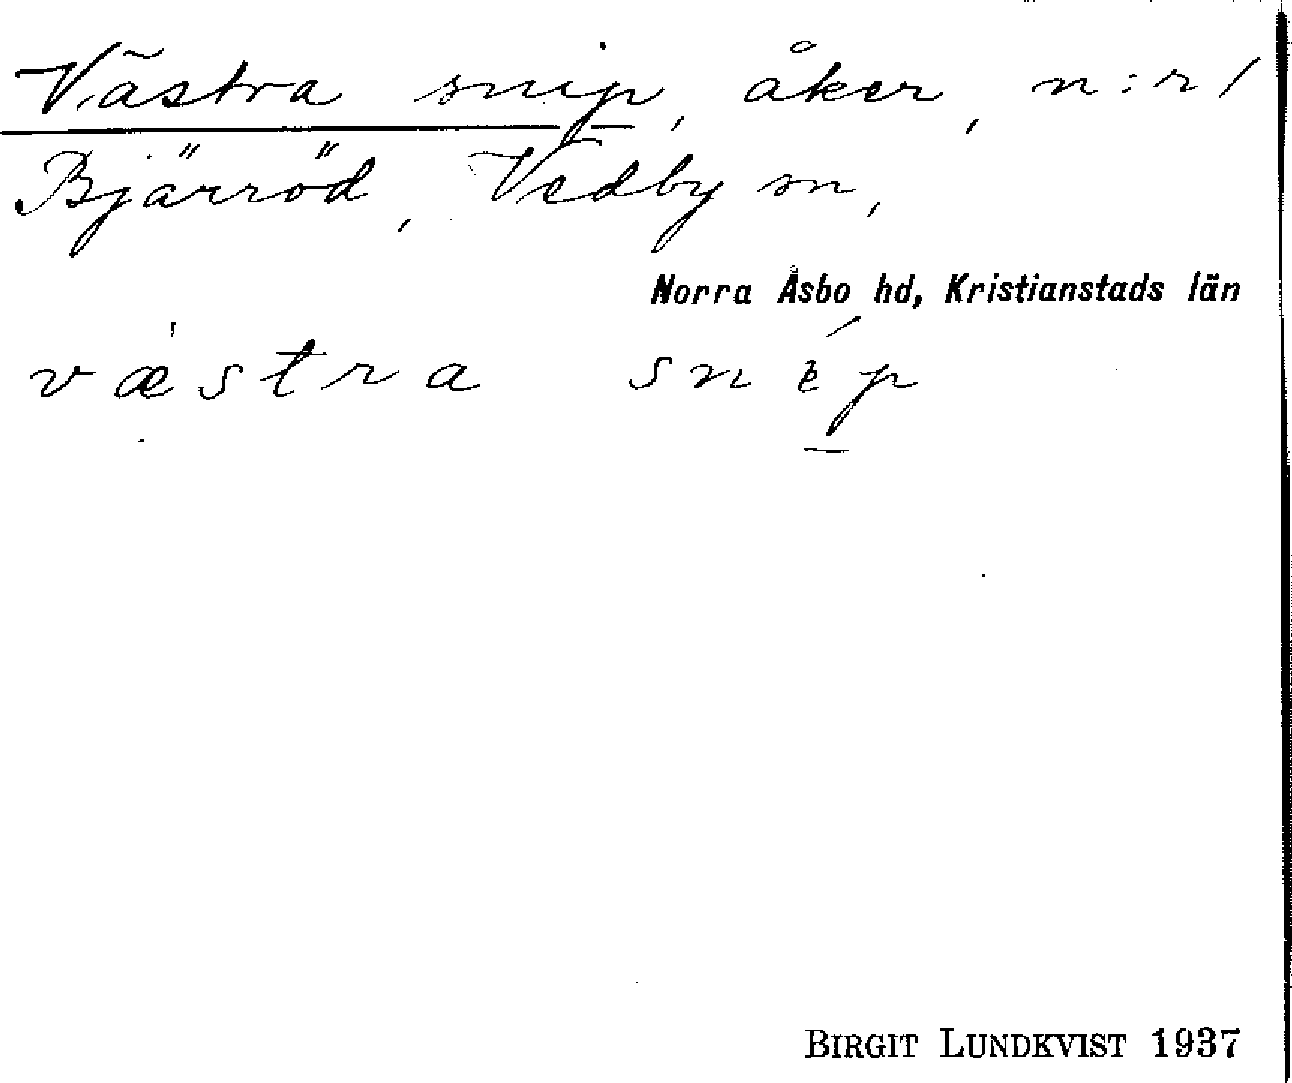 Västra snip, åker, n:r 1
Bjärröd, Vedby sn,
Norra Åsbo hd, Kristianstads län
væ̍stra snép
BIRGIT LUNDKVIST 1937